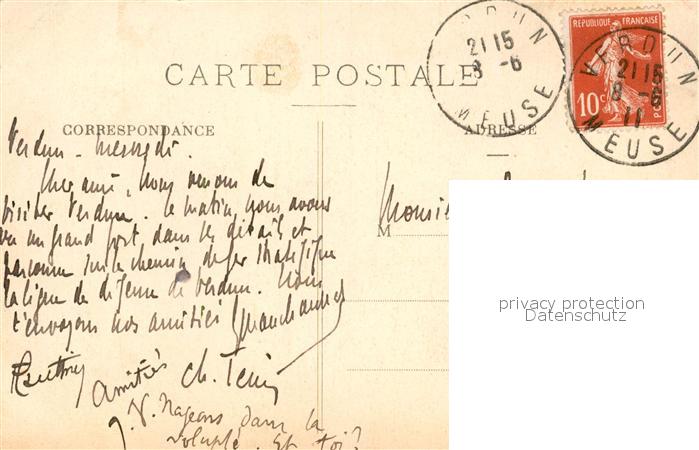 CARTE POSTALE
CORRESPONDANCE
ADRESSE
VERDUN
21 15
8 -6
MEUSE
REPUBLIQUE FRANÇAISE
10c
POSTES
VERDUN
21 15
8 -6
11
MEUSE
Verdun - mercredi.
Cher ami, nous venons de
visiter Verdun. Le matin, nous avons
vu un grand fort dans les détails et
parcouru sur le chemin de fer stratégique
la ligne de défense de Verdun. Nous
t'envoyons nos amitiés
Amitiés Ch.
Nageons dans la
volupté. Et toi?
M
privacy protection
Datenschutz